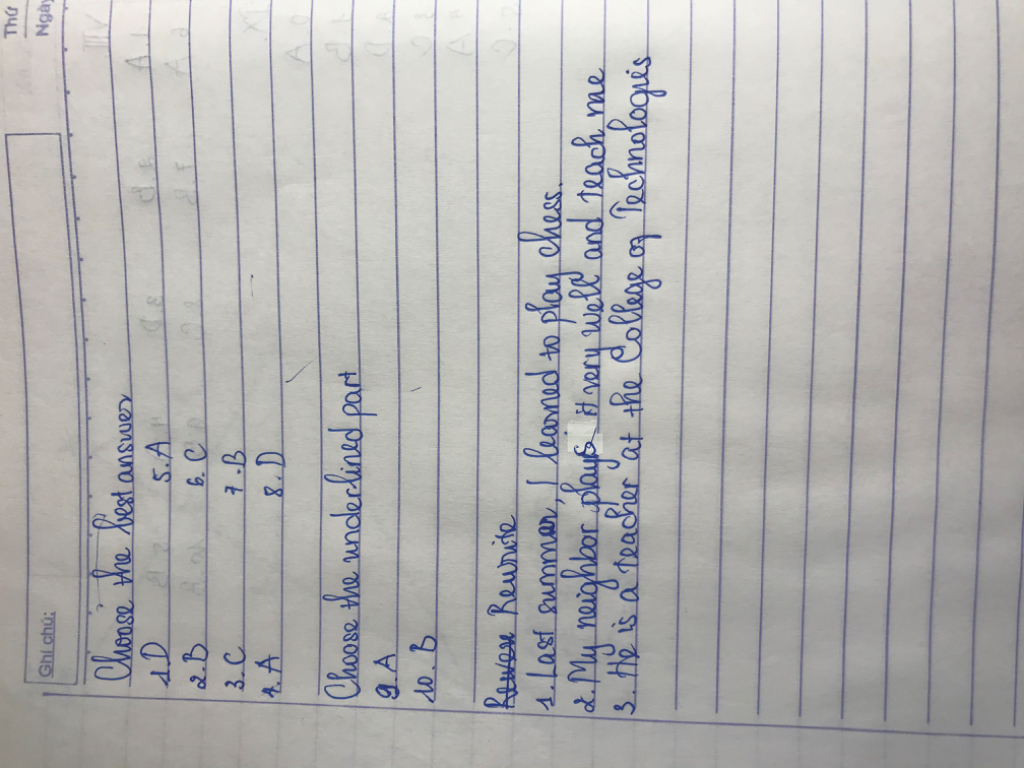 Thứ
Ngày
Ghi chú:
Choose the best answer
1.D 5.A
2.B 6.C
3.C 7.B
4.A 8.D
Choose the underlined part
9.A
10.B
Rewrite
1. Last summer, I learned to play chess.
2. My neighbor plays it very well and teach me
3. He is a teacher at the College of Technologies